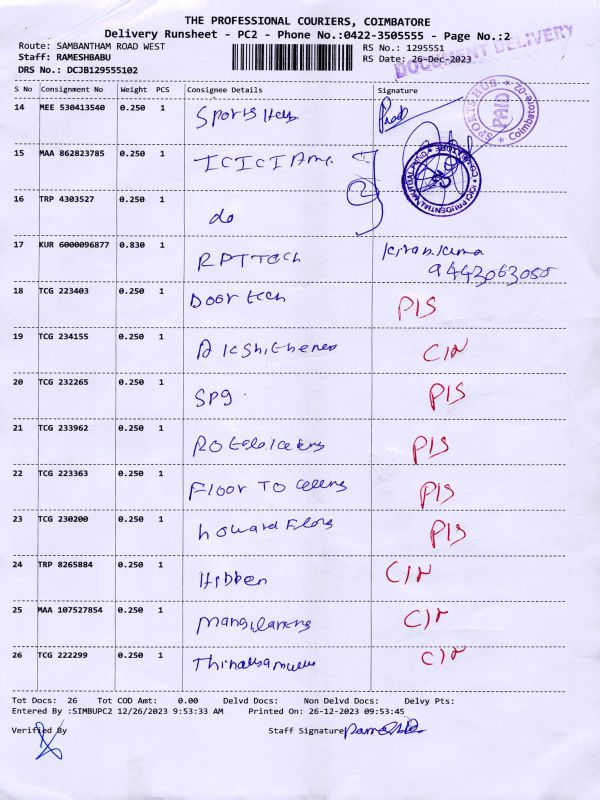 THE PROFESSIONAL COURIERS, COIMBATORE
Delivery Runsheet - PC2 - Phone No.:0422-3505555 - Page No.:2
Route: SAMBANTHAM ROAD WEST RS No.: 1295551
Staff: RAMESHBABU RS Date: 26-Dec-2023
DOCUMENT DELIVERY
DRS No.: DCJB129555102
S No Consignment No Weight PCS Consignee Details Signature
14 MEE 530413540 0.250 1 Sports Hub
SPORTS HUB PAID Coimbatore-02
15 MAA 862823785 0.250 1 ICICI Amc
ICICI PRUDENTIAL MUTUAL FUND
16 TRP 4303527 0.250 1 do
17 KUR 6000096877 0.830 1 RPT Tech
9443063055
18 TCG 223403 0.250 1 Door tech PIS
19 TCG 234155 0.250 1 CIN
20 TCG 232265 0.250 1 SPG PIS
21 TCG 233962 0.250 1 PIS
22 TCG 223363 0.250 1 Floor TO PIS
23 TCG 230200 0.250 1 PIS
24 TRP 8265884 0.250 1 CIN
25 MAA 107527854 0.250 1 CIN
26 TCG 222299 0.250 1 CIN
Tot Docs: 26 Tot COD Amt: 0.00 Delvd Docs: Non Delvd Docs: Delvy Pts:
Entered By :SIMBUPC2 12/26/2023 9:53:33 AM Printed On: 26-12-2023 09:53:45
Verified By Staff Signature